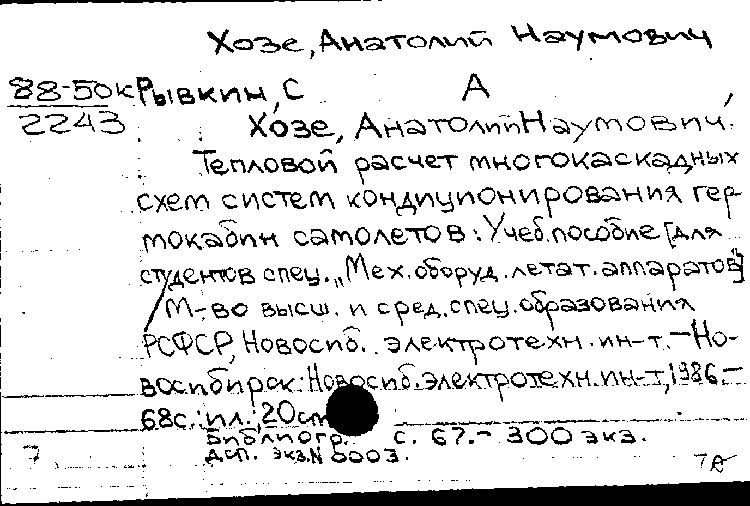 Хозе, Анатолий Наумович
88-50к Рывкин, С А
2243 Хозе, Анатолий Наумович.
Тепловой расчет многокаскадных
схем систем кондиционирования гер-
мокабин самолетов: Учеб. пособие [для
студентов спец. „Мех. оборуд. летат. аппаратов"]
/ М-во высш. и сред. спец. образования
РСФСР, Новосиб. электротехн. ин-т. — Но-
восибирск: Новосиб. электротехн. ин-т, 1986.—
68с.: ил.; 20см
Библиогр. с. 67.— 300 экз.
7 Дсп. экз.N 0003.